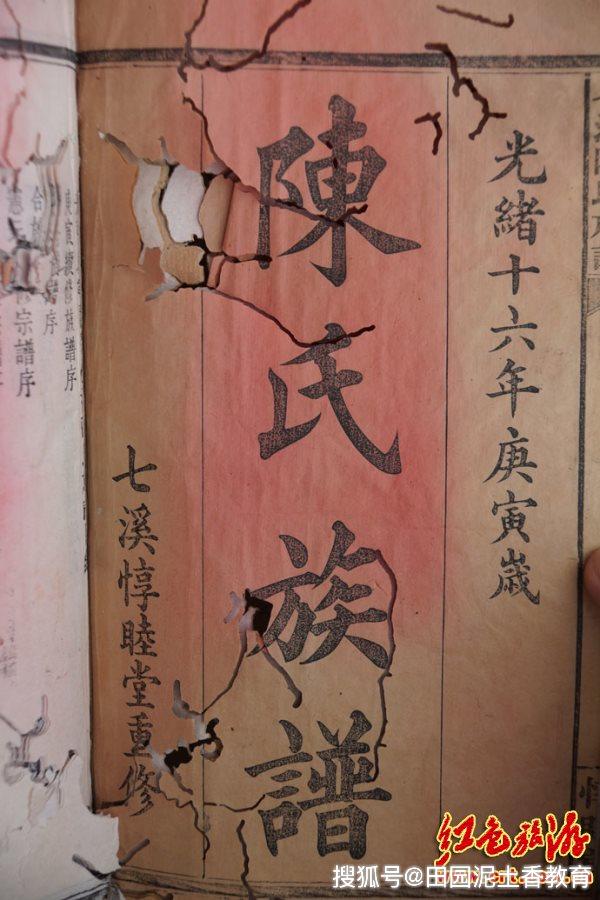 光緒十六年庚寅歲
陳氏族譜
七溪惇睦堂重修
庚寅續修族譜序
宗譜序
红色旅游
搜狐号@田园泥土香教育